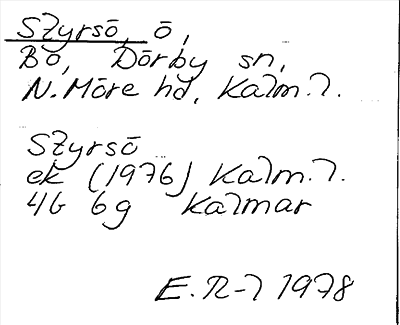 Styrsö, ö,
Bo, Dörby sn,
N. Möre hd, Kalm. l.
Styrsö
ek (1976) Kalm. l.
4G 6g Kalmar
E. N-l 1978